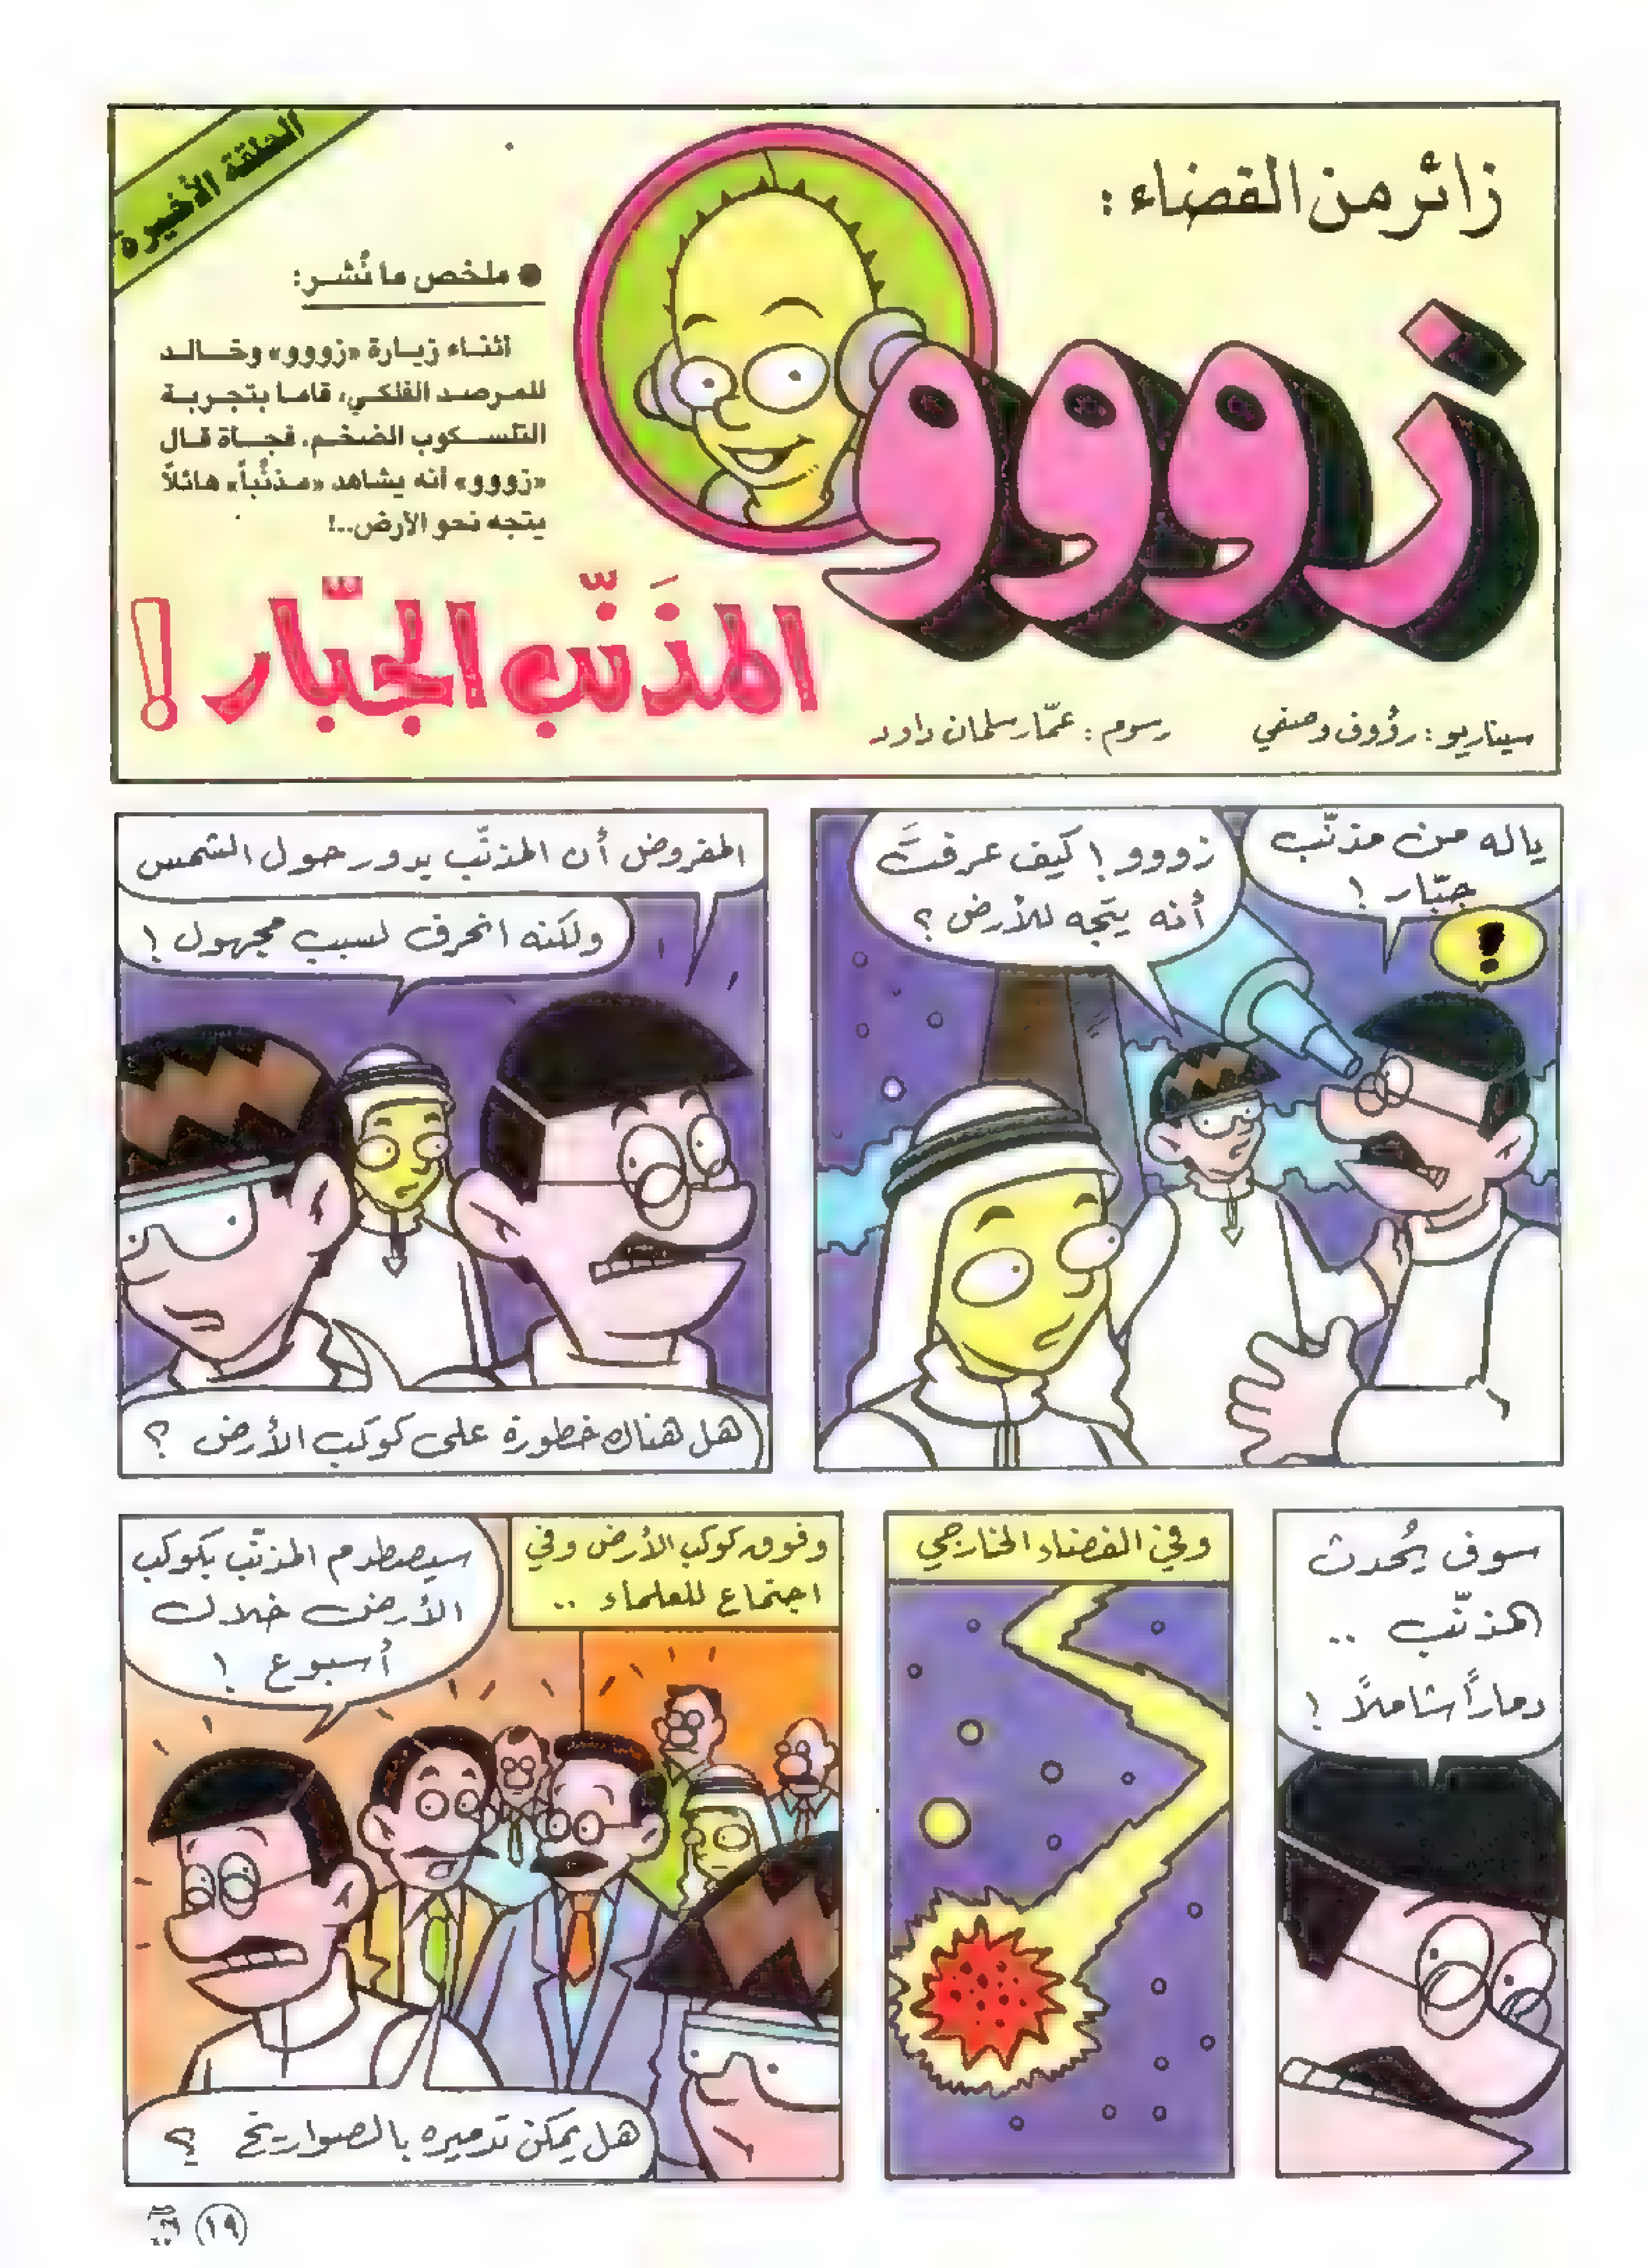 الحلقة الأخيرة
زائر من الفضاء:
زووو
● ملخص ما نُشر:
أثناء زيارة «زووو» وخالد
للمرصد الفلكي، قاما بتجربة
التلسكوب الضخم، فجأة قال
«زووو» أنه يشاهد «مذنَّباً» هائلاً
يتجه نحو الأرض..!
المذَنّب الجبّار!
سيناريو: رؤوف وصفي
رسوم: عمّار سلمان داود
ياله من مذنّب
جبّار!
!
زووو! كيف عرفتَ
أنه يتجه للأرض؟
المفروض أن المذنّب يدور حول الشمس
ولكنه انحرف لسبب مجهول!
هل هناك خطورة على كوكب الأرض؟
سوف يُحدث
المذنّب ..
دماراً شاملاً!
وفي الفضاء الخارجي
وفوق كوكب الأرض وفي
اجتماع للعلماء ..
سيصطدم المذنّب بكوكب
الأرض خلال
أسبوع!
هل يمكن تدميره بالصواريخ؟
١٩